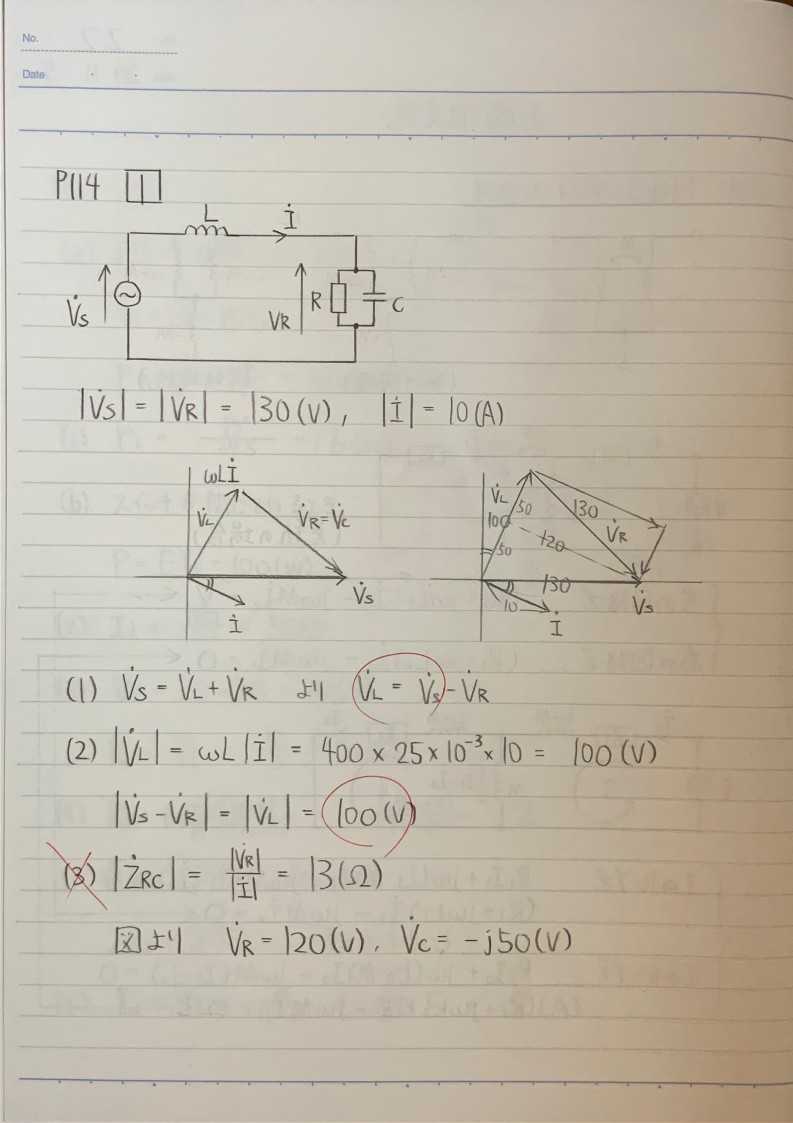 No.
Date
P114 1
L İ
V̇s VR R C
|V̇s| = |V̇R| = 130 (V), |İ| = 10 (A)
ωLİ V̇L V̇R = V̇c V̇s İ
V̇L 50 100 50 130 120 V̇R 130 10 V̇s İ
(1) V̇s = V̇L + V̇R より V̇L = V̇s - V̇R
(2) |V̇L| = ωL |İ| = 400 × 25 × 10⁻³ × 10 = 100 (V)
|V̇s - V̇R| = |V̇L| = 100 (V)
(3) |ŻRC| = |V̇R| / |İ| = 13 (Ω)
図より V̇R = 120 (V), V̇c = -j50 (V)